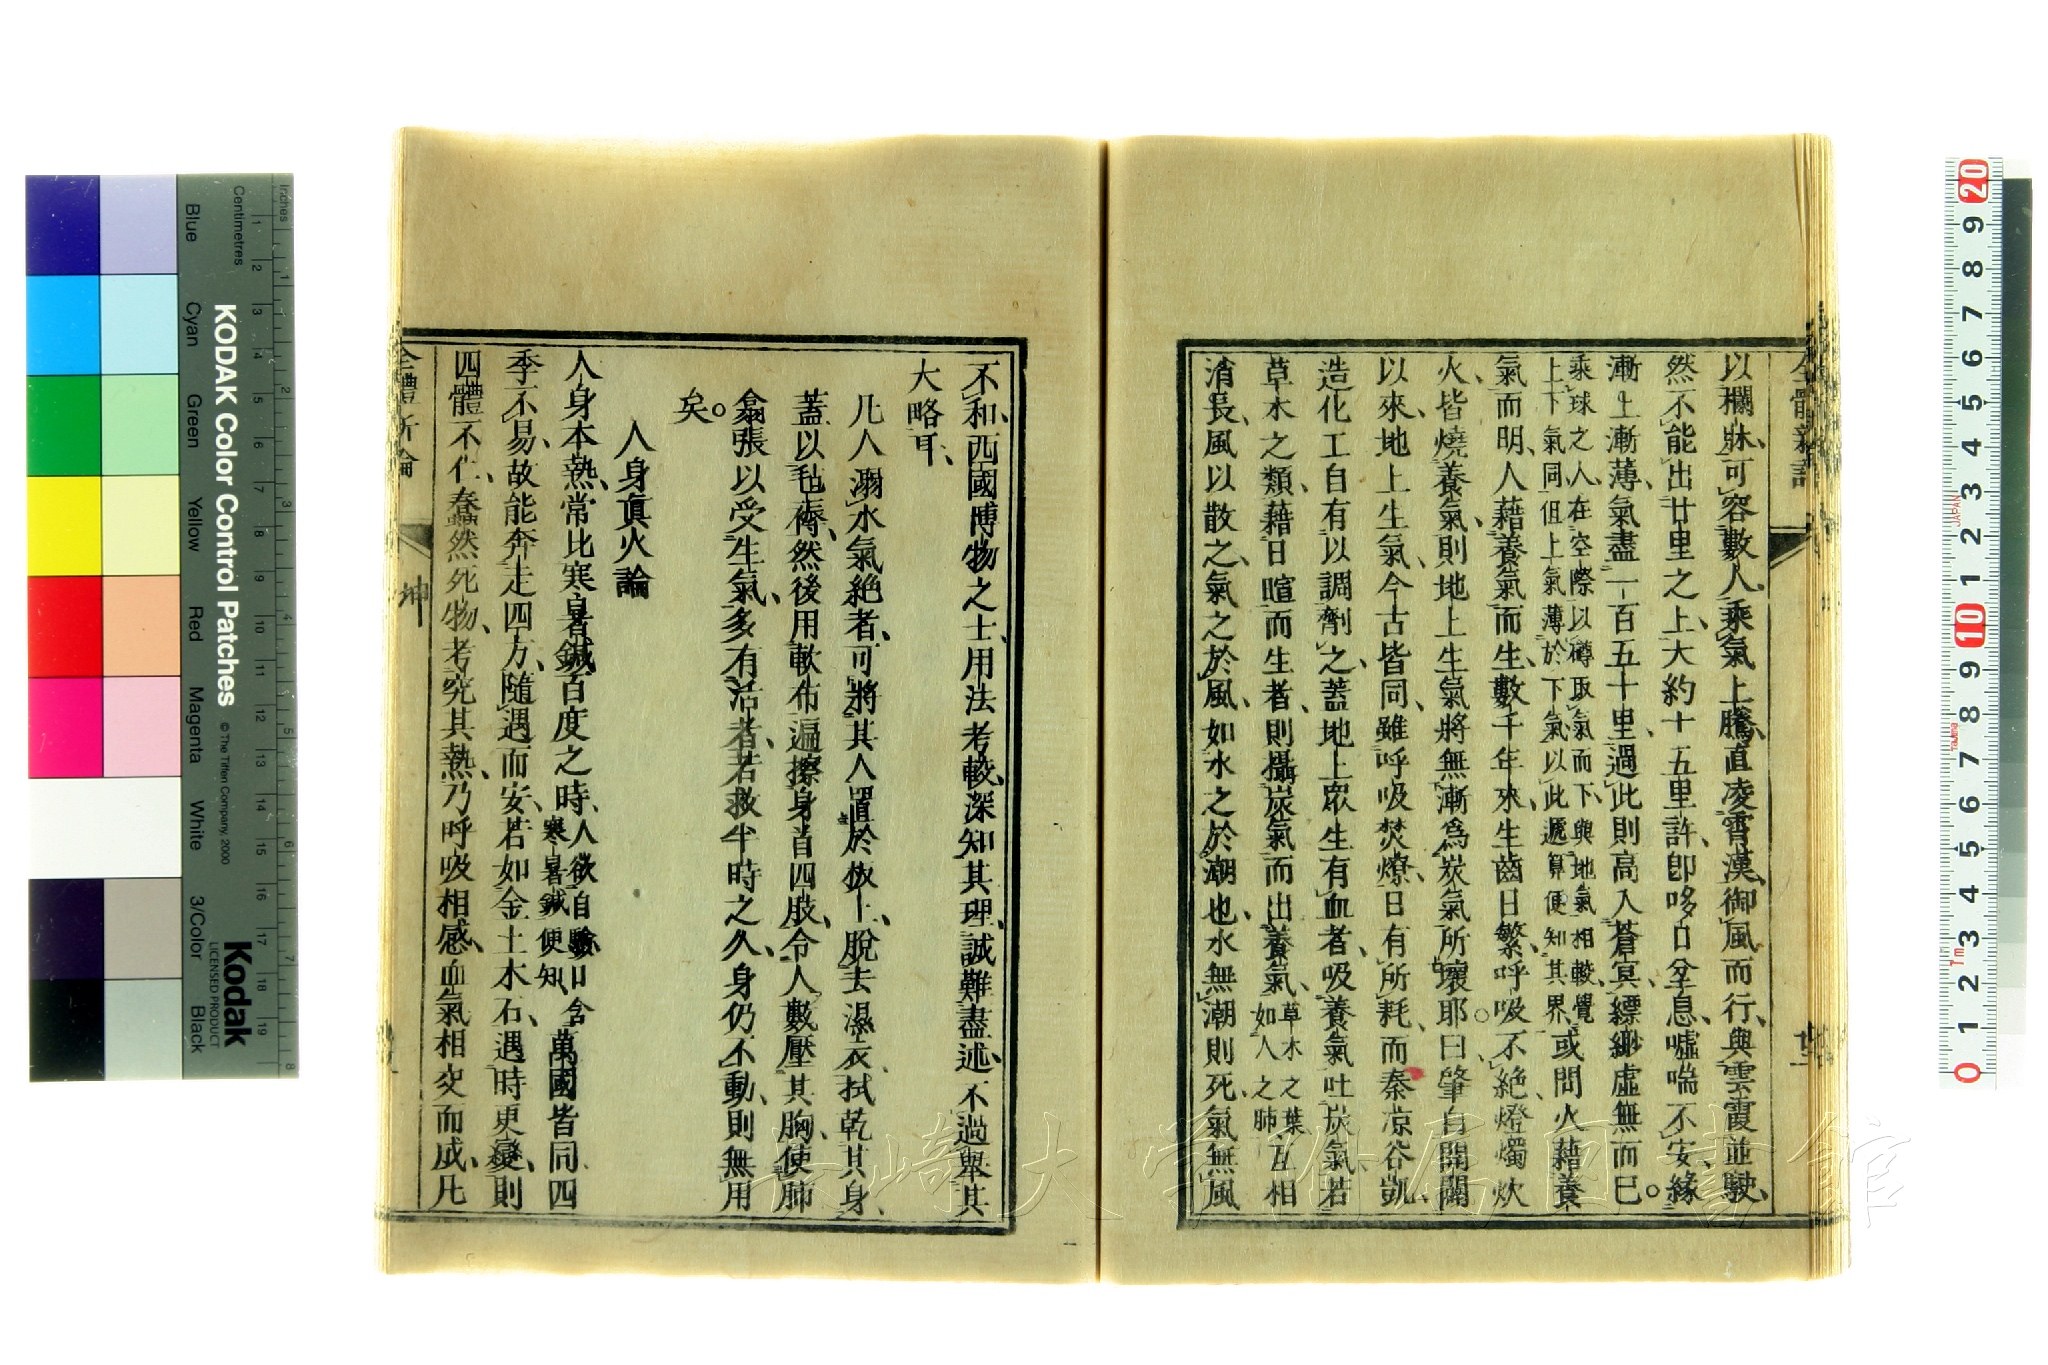 全體新論
以欄牀、可容數人、乘氣上騰、直凌霄漢、御風而行、與雲霞並駛、
然不能出廿里之上、大約十五里許、卽哆口坌息、噓喘不安、緣
漸上漸薄、氣盡一百五十里、過此則高入蒼冥、縹緲虛無而已。
乘球之人在空際以罇取氣而下、與地氣相較、覺
上下氣同但上氣薄於下氣以此遞算便知其界
或問火藉養
氣而明、人藉養氣而生、數千年來、生齒日繁、呼吸不絕、燈燭炊
火、皆燒養氣、則地上生氣、將無漸爲炭氣所壞耶。曰肇自開闢
以來、地上生氣、今古皆同、雖呼吸焚燎、日有所耗、而泰凉谷凱、
造化工自有以調劑之、蓋地上眾生有血者、吸養氣吐炭氣、若
草木之類、藉日暄而生者、則攝炭氣而出養氣、
草木之葉
如人之肺
互相
消長、風以散之、氣之於風、如水之於潮也、水無潮則死、氣無風
不和、西國博物之士、用法考較、深知其理、誠難盡述、不過舉其
大略耳、
凡人溺水氣絕者、可將其人置於板上、脫去濕衣、拭乾其身、
蓋以毡褥、然後用軟布遍擦身首四肢、令人數壓其胸、使肺
翕張、以受生氣、多有活者、若救半時之久、身仍不動、則無用
矣。
人身眞火論
人身本熱、常比寒暑鍼百度之時、
人欲自驗口含
寒暑鍼便知、
萬國皆同、四
季不易、故能奔走四方、隨遇而安、若如金土木石、遇時更變、則
四體不仁、蠢然死物、考究其熱、乃呼吸相感、血氣相交而成、凡
全體新論
坤